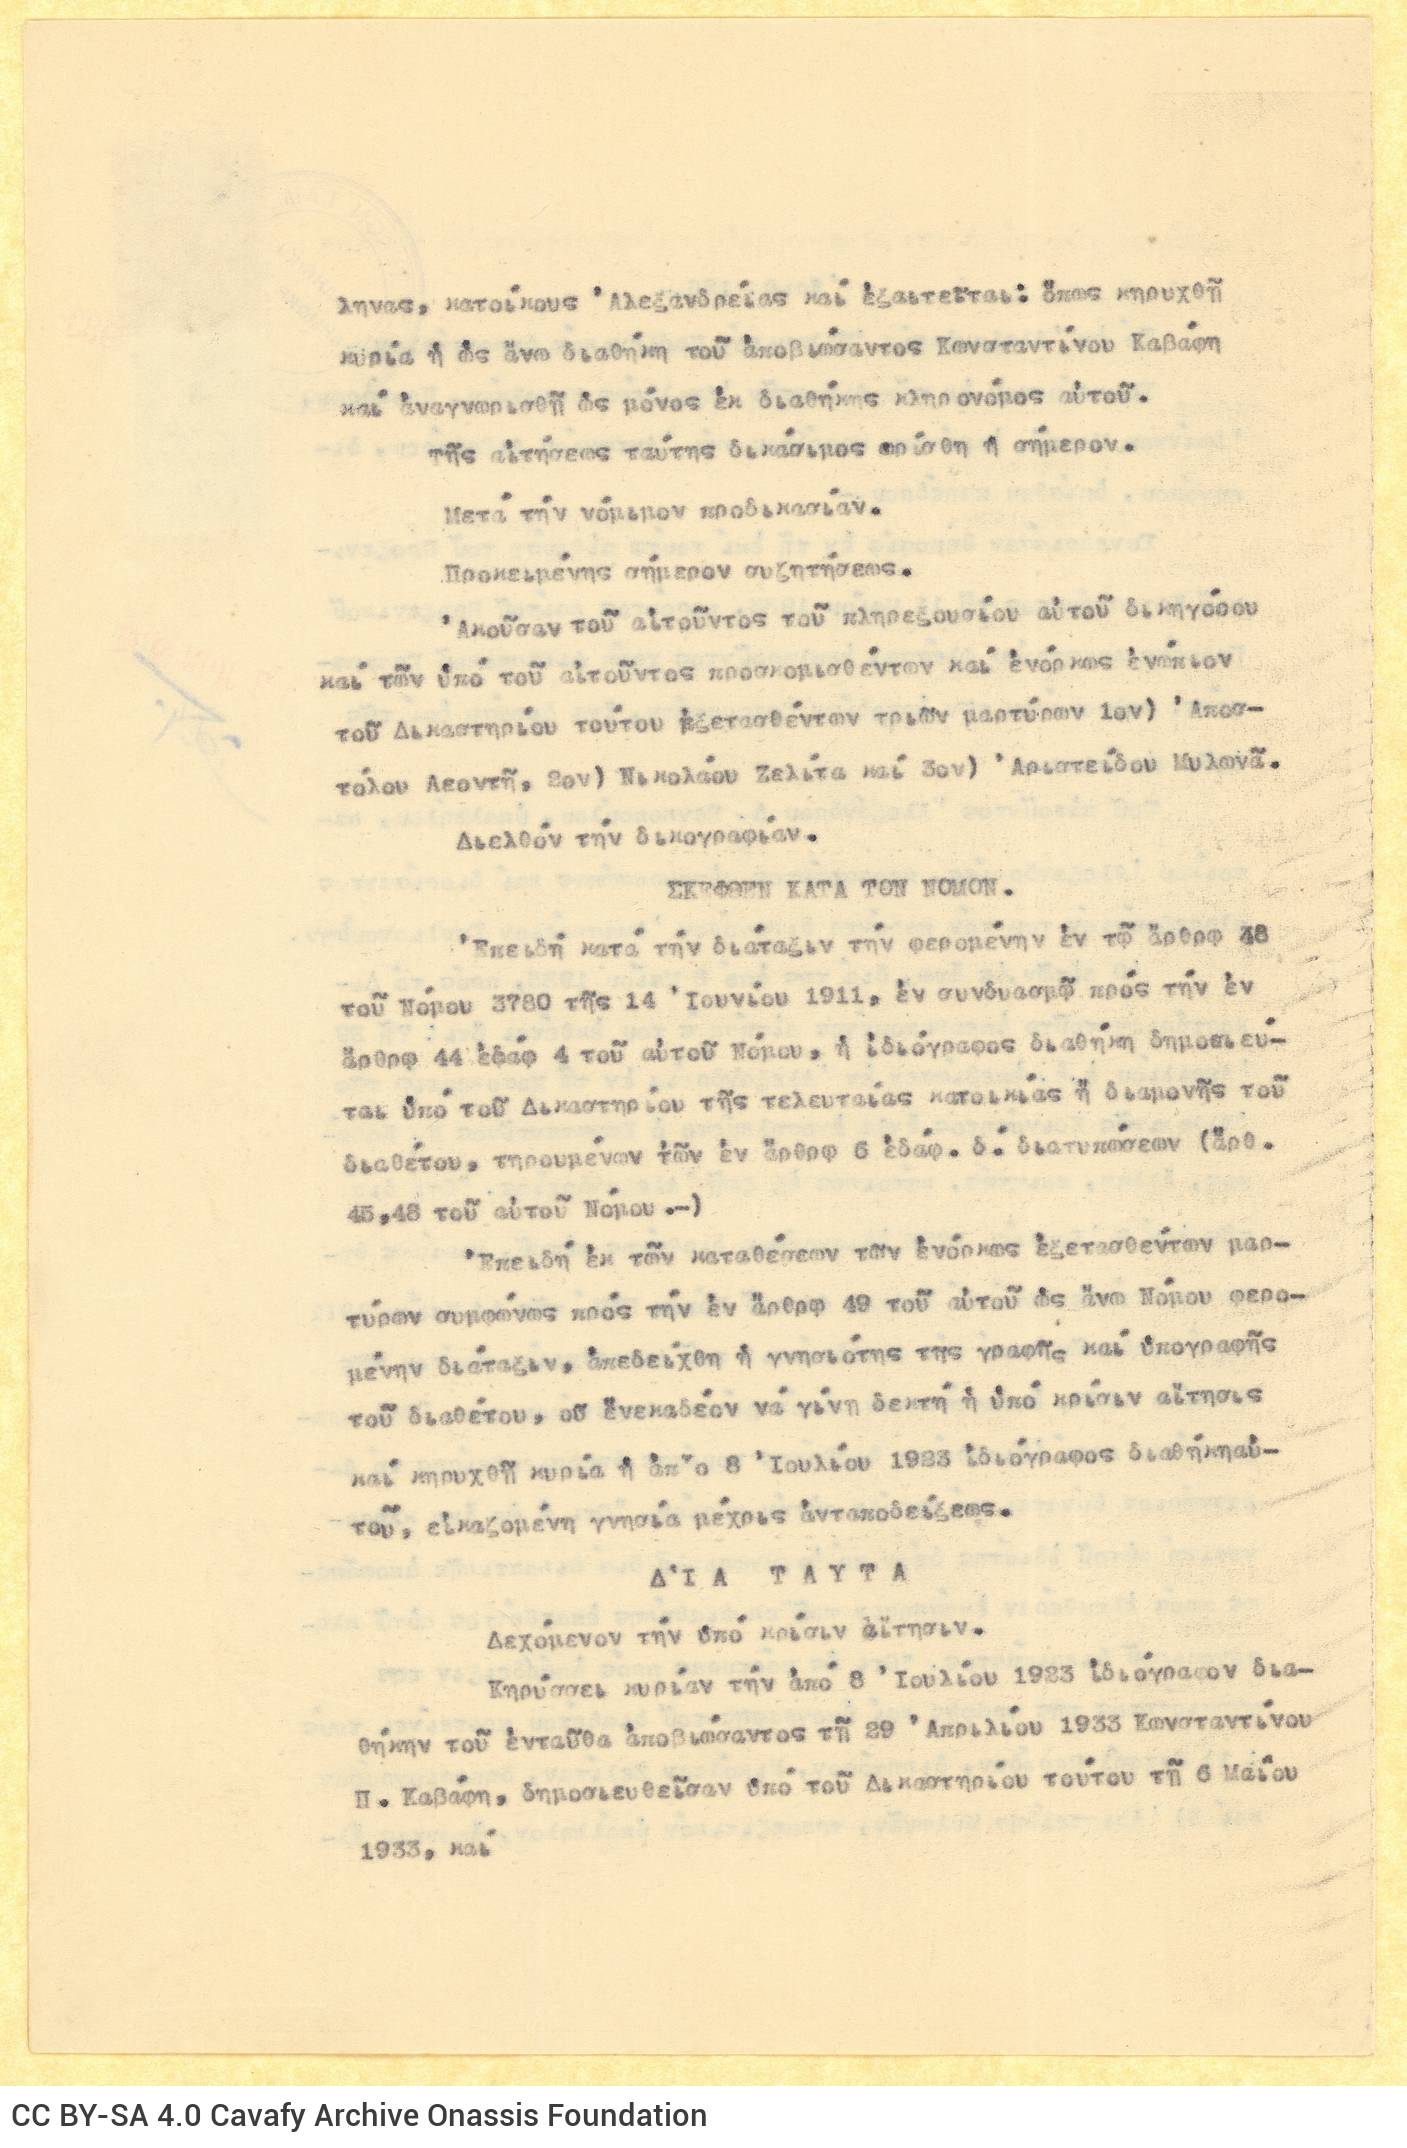 ληνας, κατοίκους 'Αλεξανδρείας καί ἐξαιτεῖται: ὅπως κηρυχθῇ
κυρία ἡ ὡς ἄνω διαθήκη τοῦ ἀποβιώσαντος Κωνσταντίνου Καβάφη
καί ἀναγνωρισθῇ ὡς μόνος ἐκ διαθήκης κληρονόμος αὐτοῦ.
τῆς αἰτήσεως ταύτης δικάσιμος ὡρίσθη ἡ σήμερον.
Μετά τήν νόμιμον προδικασίαν.
Προκειμένης σήμερον συζητήσεως.
'Ακοῦσαν τοῦ αἰτοῦντος τοῦ πληρεξουσίου αὐτοῦ δικηγόρου
καί τῶν ὑπό τοῦ αἰτοῦντος προσκομισθέντων καί ἐνόρκως ἐνώπιον
τοῦ Δικαστηρίου τούτου ἐξετασθέντων τριῶν μαρτύρων 1ον) 'Αποσ-
τόλου Λεοντῆ, 2ον) Νικολάου Ζελίτα καί 3ον) 'Αριστείδου Μυλωνᾶ.
Διελθόν τήν δικογραφίαν.
ΣΚΕΦΘΕΝ ΚΑΤΑ ΤΟΝ ΝΟΜΟΝ.
'Επειδή κατά τήν διάταξιν τήν φερομένην ἐν τῷ ἄρθρφ 48
τοῦ Νόμου 3780 τῆς 14 'Ιουνίου 1911, ἐν συνδυασμῷ πρός τήν ἐν
ἄρθρφ 44 ἐδάφ 4 τοῦ αὐτοῦ Νόμου, ἡ ἰδιόγραφος διαθήκη δημοσιεύ-
ται ὑπό τοῦ Δικαστηρίου τῆς τελευταίας κατοικίας ἤ διαμονῆς τοῦ
διαθέτου, τηρουμένων τῶν ἐν ἄρθρφ 6 ἐδάφ. δ. διατυπώσεων (ἄρθ.
45,48 τοῦ αὐτοῦ Νόμου.-)
'Επειδή ἐκ τῶν καταθέσεων τῶν ἐνόρκως ἐξετασθέντων μαρ-
τύρων συμφώνως πρός τήν ἐν ἄρθρφ 49 τοῦ αὐτοῦ ὡς ἄνω Νόμου φερο-
μένην διάταξιν, ἀπεδείχθη ἡ γνησιότης της γραφῆς καί ὑπογραφῆς
τοῦ διαθέτου, οὗ ἕνεκαδέον νά γίνη δεκτή ἡ ὑπό κρίσιν αἴτησις
καί κηρυχθῇ κυρία ἡ ἀπ'ο 8 'Ιουλίου 1923 ἰδιόγραφος διαθήκηαὐ-
τοῦ, εἰκαζομένη γνησία μέχρις ἀνταποδείξεως.
Δ'Ι Α ΤΑΥΤΑ
Δεχόμενον τήν ὑπό κρίσιν αἴτησιν.
Κηρύσσει κυρίαν τήν ἀπό 8 'Ιουλίου 1923 ἰδιόγραφον δια-
θήκην τοῦ ἐνταῦθα ἀποβιώσαντος τῇ 29 'Απριλίου 1933 Κωνσταντίνου
Π. Καβάφη, δημοσιευθεῖσαν ὑπό τοῦ Δικαστηρίου τούτου τῇ 6 Μαΐου
1933, καί
CC BY-SA 4.0 Cavafy Archive Onassis Foundation